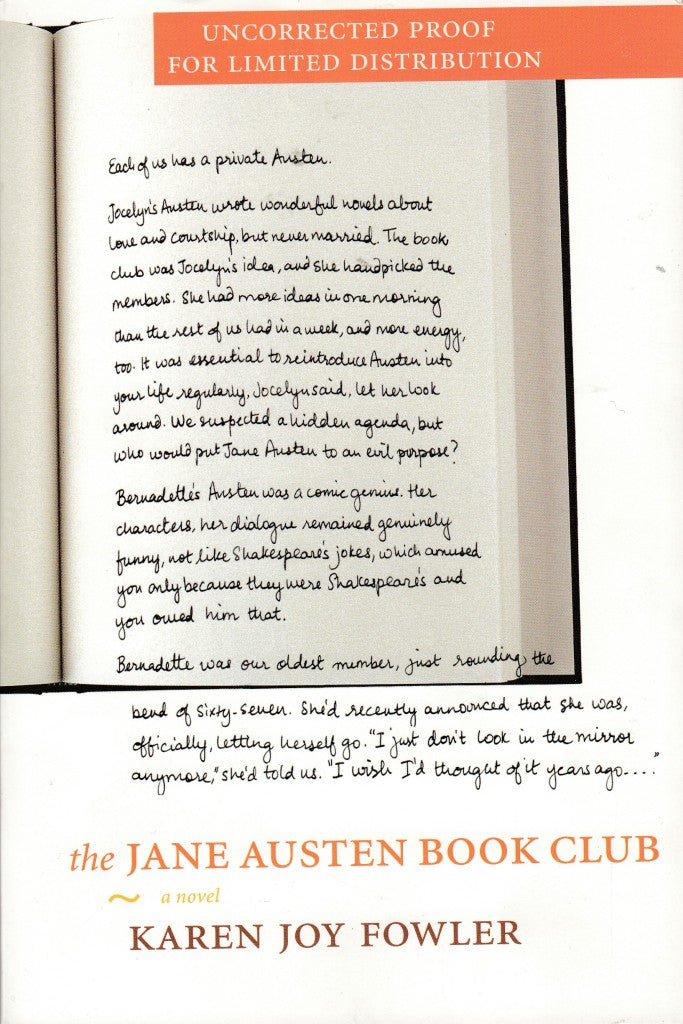 UNCORRECTED PROOF
FOR LIMITED DISTRIBUTION
Each of us has a private Austen.
Jocelyn's Austen wrote wonderful novels about
love and courtship, but never married. The book
club was Jocelyn's idea, and she handpicked the
members. She had more ideas in one morning
than the rest of us had in a week, and more energy,
too. It was essential to reintroduce Austen into
your life regularly, Jocelyn said, let her look
around. We suspected a hidden agenda, but
who would put Jane Austen to an evil purpose?
Bernadette's Austen was a comic genius. Her
characters, her dialogue remained genuinely
funny, not like Shakespeare's jokes, which amused
you only because they were Shakespeare's and
you owed him that.
Bernadette was our oldest member, just rounding the
bend of sixty-seven. She'd recently announced that she was,
officially, letting herself go. "I just don't look in the mirror
anymore," she'd told us. "I wish I'd thought of it years ago...."
the JANE AUSTEN BOOK CLUB
~ a novel
KAREN JOY FOWLER